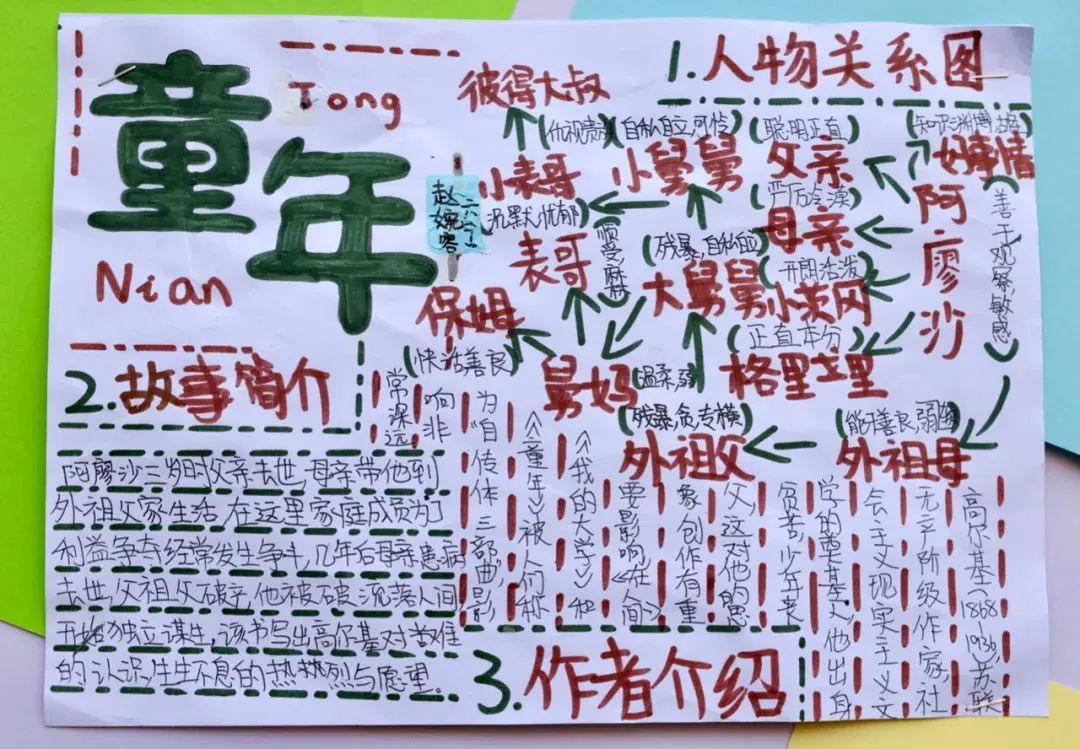 童年
Tong
Nian
赵婉容
六(7)
1.人物关系图
彼得大叔
自私自立,可怜
聪明正直
知识渊博
小表哥
小舅舅
父亲
好事情
沉默忧郁
严厉冷漠
阿廖沙
善于观察,敏感
表哥
顺受,麻
残暴,自私
母亲
开朗活泼
大舅舅
小茨冈
正直本分
保姆
快活善良
舅妈
温柔,弱
格里戈里
残暴,贪,专横
外祖父
善良,弱
外祖母
2.故事简介
阿廖沙三岁时父亲去世,母亲带他到
外祖父家生活,在这里家庭成员为了
利益争夺经常发生争斗,几年后母亲患病
去世,外祖父破产,他被破,流落人间,
开始独立谋生,该书写出高尔基对苦难
的认识,生生不息的热热烈与愿望。
3.作者介绍
高尔基(1868
1936,苏联
无产阶级作家,社
会主义现实主义文
学的奠基人,他出身
贫苦,少年丧
父,这对他的思
象创作有重
要影响《在人间》
《我的大学》和
《童年》被人们称
为“自传体三部曲”,影
响非
常深远